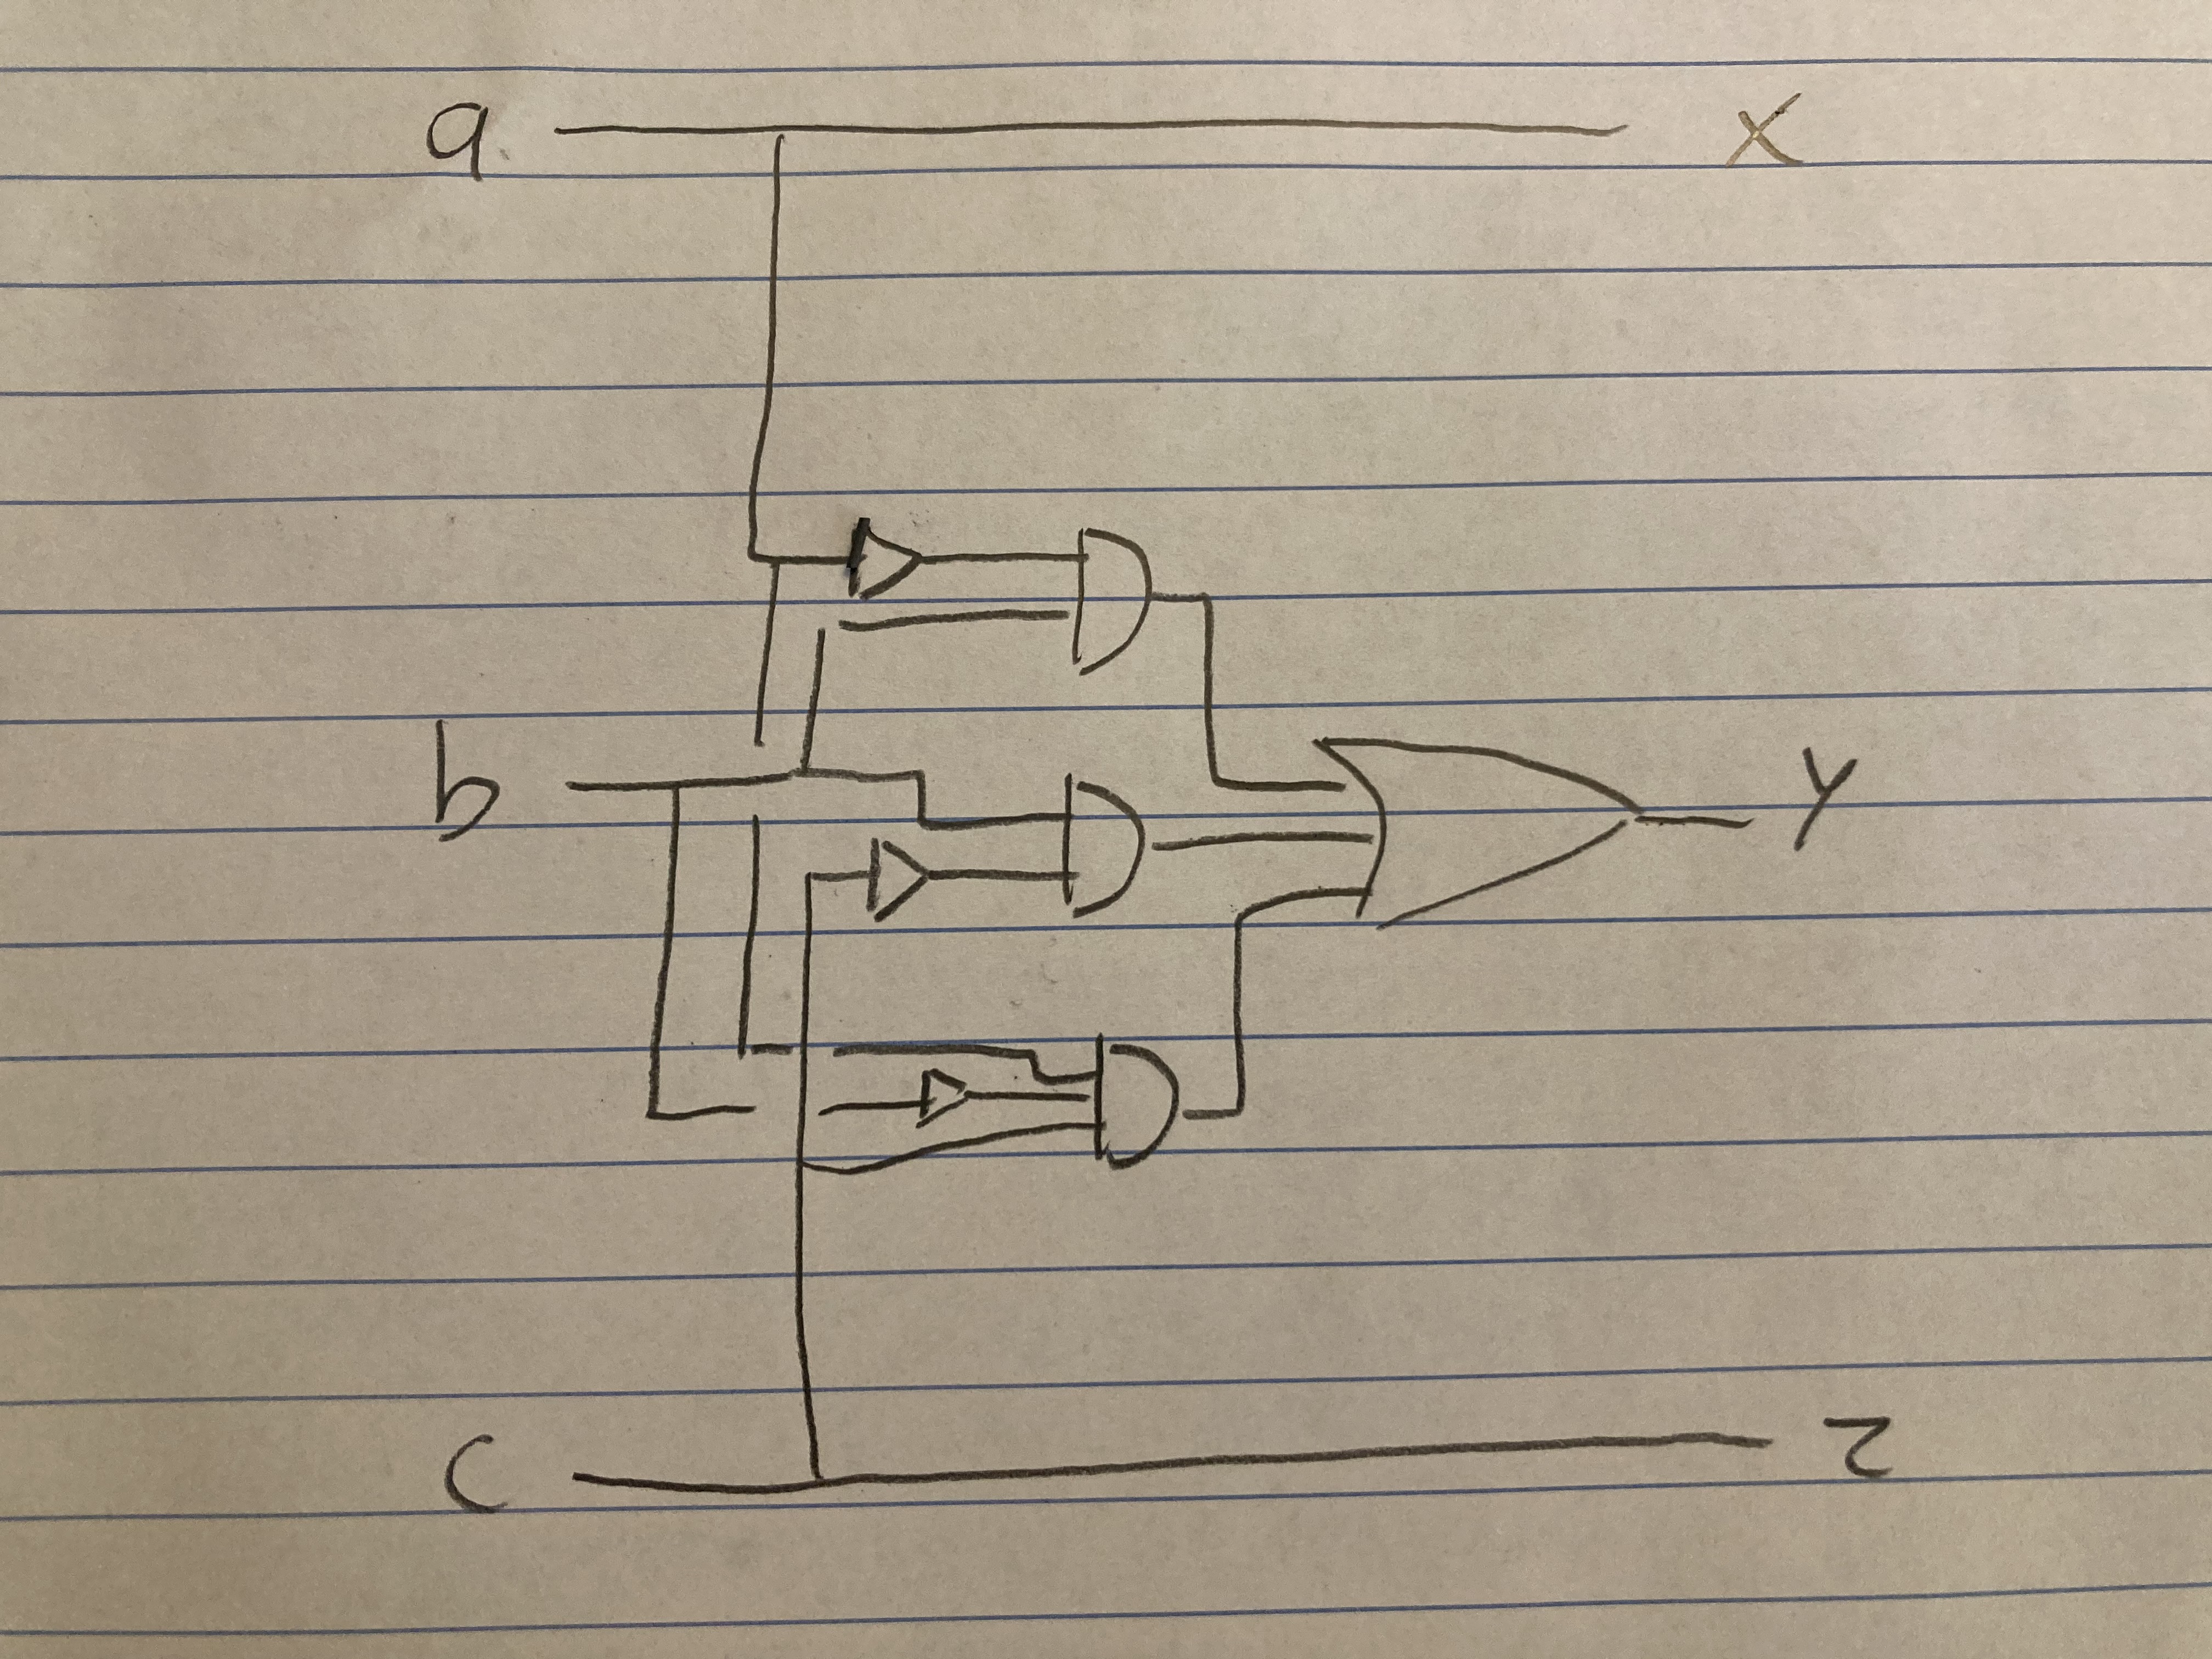 a x
b y
c z